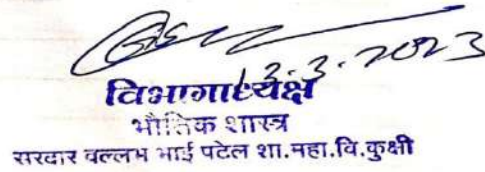 13.3.2023
विभागाध्यक्ष
भौतिक शास्त्र
सरदार वल्लभ भाई पटेल शा.महा.वि.कुक्षी